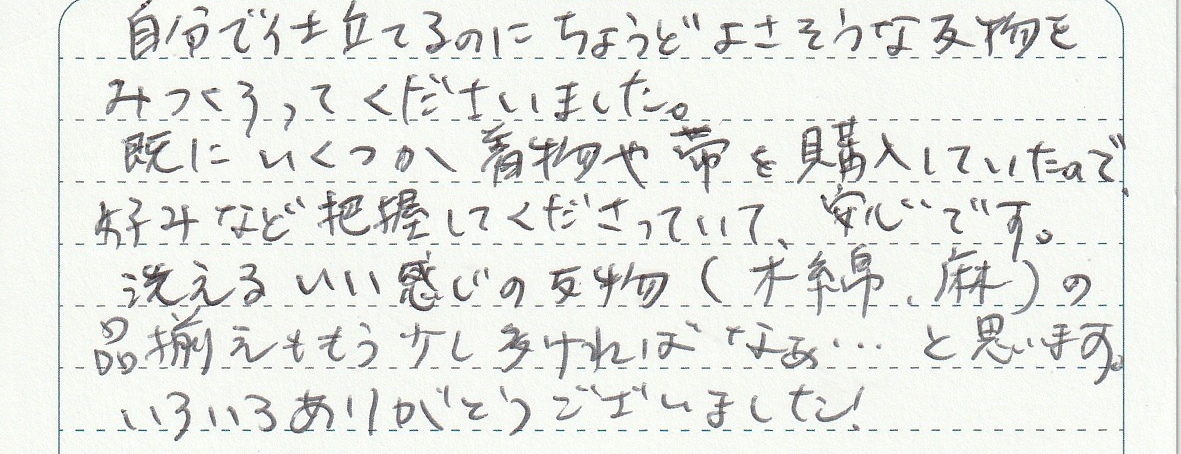 自分で仕立てるのにちょうどよさそうな反物を
みつくろってくださいました。
既にいくつか着物や帯を購入していたので、
好みなど把握してくださっていて、安心です。
洗えるいい感じの反物(木綿、麻)の
品揃えももう少し多ければなぁ…と思います。
いろいろありがとうございました!